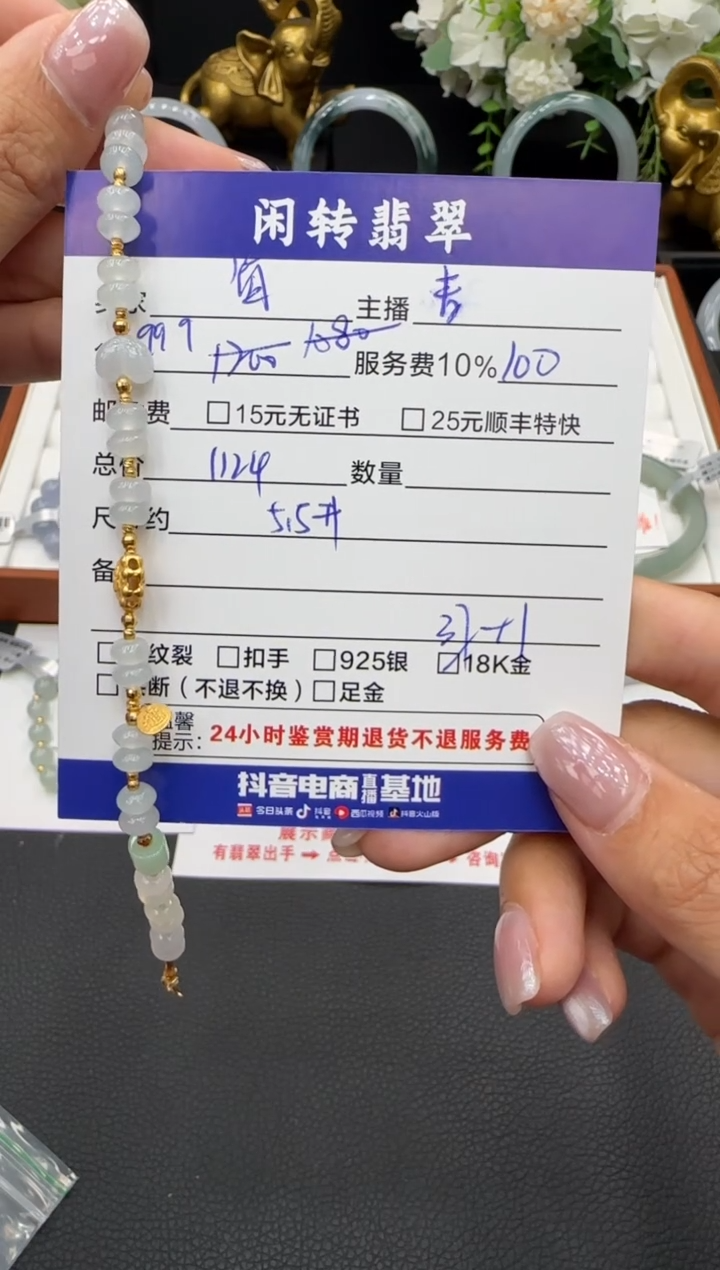 闲转翡翠
主播
999 1200 1080 服务费10% 100
邮 费 □15元无证书 □25元顺丰特快
总价 1124 数量
尺 约 5.5开
备
□ 纹裂 □扣手 □925银 ☑18K金
□ 断(不退不换) □足金
温馨
提示: 24小时鉴赏期退货不退服务费
抖音电商直播基地
今日头条 抖音 西瓜视频 抖音火山版
展示
有翡翠出手→ 咨询